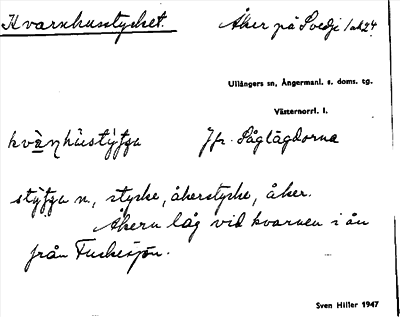 Kvarnhusstycket. Åker på Svedje 1 akt 24
Ullångers sn, Ångermanl. s. doms. tg.
Västernorrl. l.
Jfr. Såglägdorna
n, stycke, åkerstycke, åker.
Åkern låg vid kvarnen i ån
från Fuskesjön.
Sven Hiller 1947